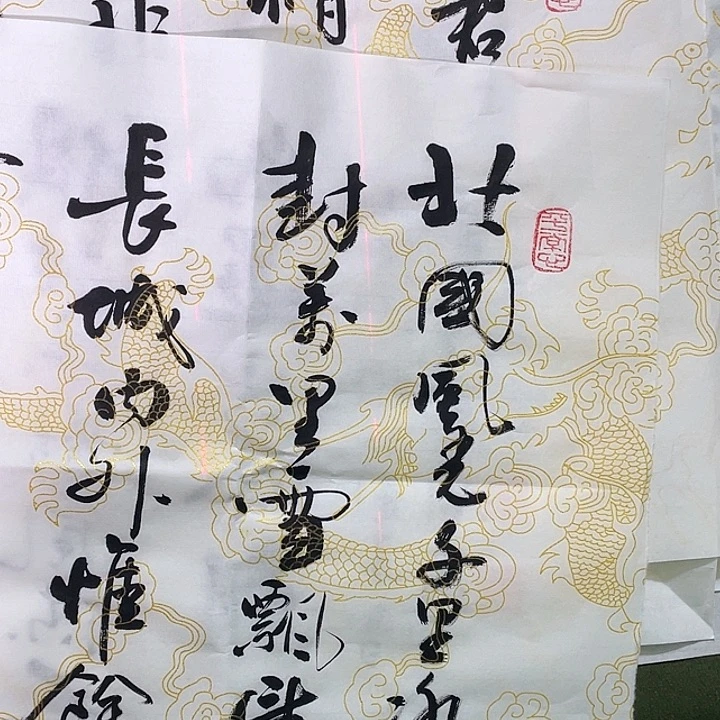 北國風光千里冰
封萬里雪飄望
長城內外惟餘